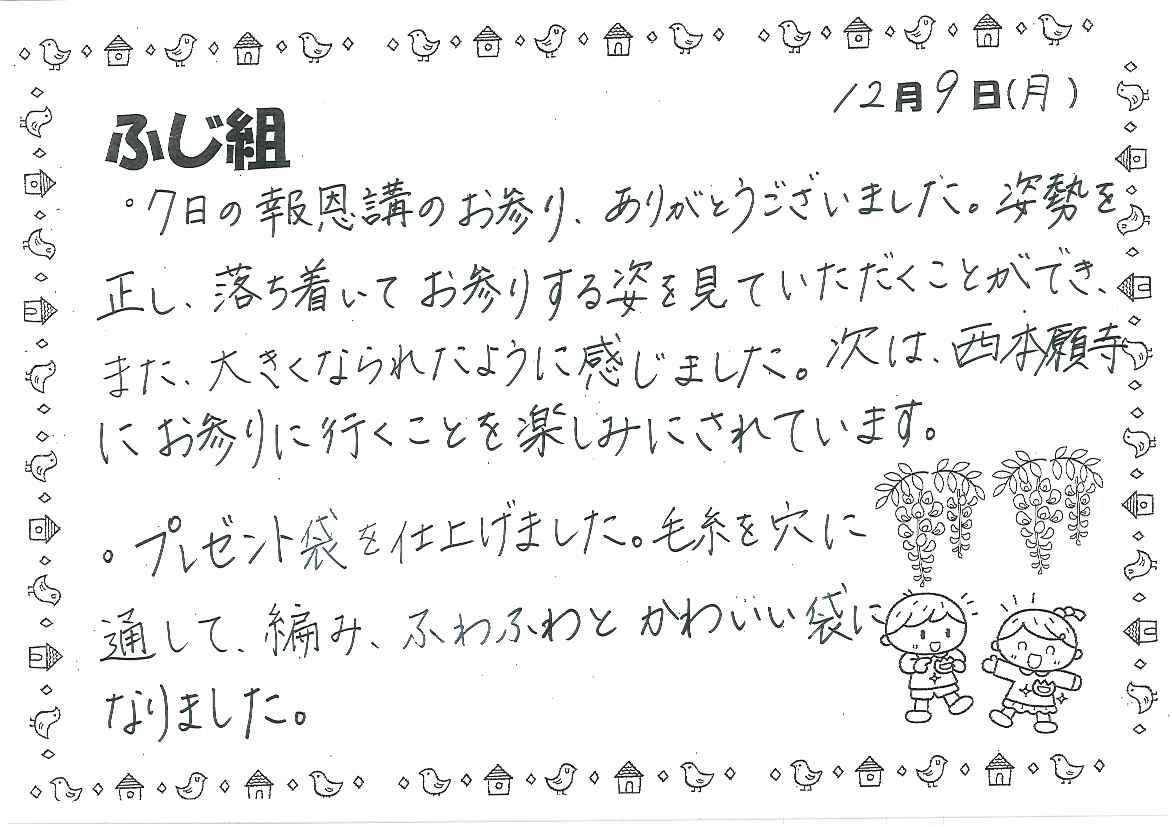 12月9日(月)
ふじ組
・7日の報恩講のお参り、ありがとうございました。姿勢を
正し、落ち着いてお参りする姿を見ていただくことができ、
また、大きくなられたように感じました。次は、西本願寺
にお参りに行くことを楽しみにされています。
・プレゼント袋を仕上げました。毛糸を穴に
通して、編み、ふわふわとかわいい袋に
なりました。